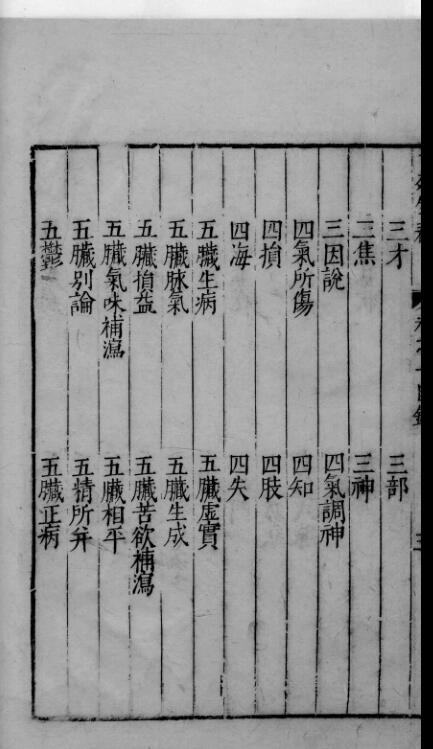 三才　三部
三焦　三神
三因說　四氣調神
四氣所傷　四知
四損　四肢
四海　四失
五臟生病　五臟虛實
五臟脉氣　五臟生成
五臟損益　五臟苦欲補瀉
五臟氣味補瀉　五臟相平
五臟別論　五情所并
五鬱　五臟正病